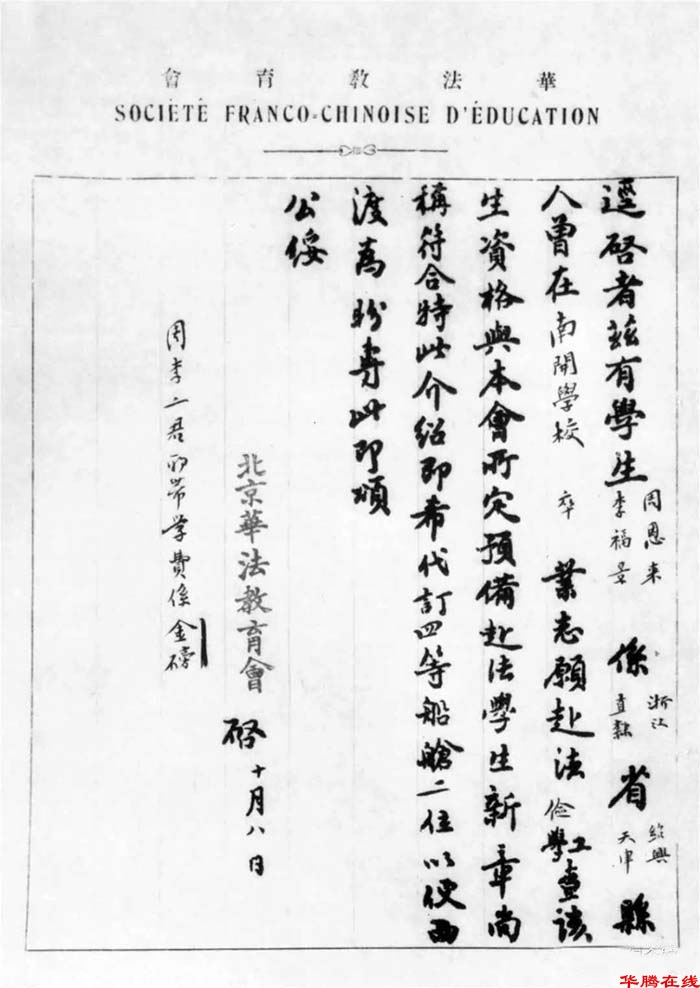 華法教育會
SOCIÉTÉ FRANCO-CHINOISE D'ÉDUCATION
逕啓者茲有學生周恩来李福景係浙江直隸省紹興天津縣
人曾在南開學校卒業志願赴法儉學工查該
生資格與本會所定預備赴法學生新章尚
稱符合特此介紹即希代訂四等船艙二位以便西
渡為盼專此即頌
公綏
北京華法教育會啓十月八日
周李二君所帶学費係金磅
华腾在线